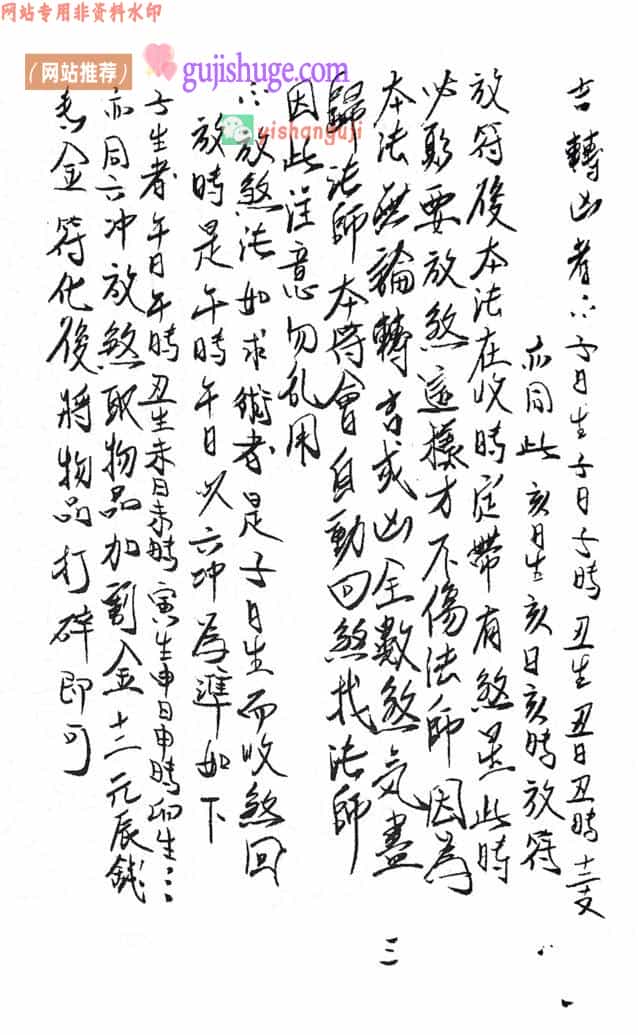 网站专用非资料水印
（网站推荐）
gujishuge.com
yishanguji
吉轉凶者：子日生子日子時丑生丑日丑時十二支
亦同此亥日生亥日亥時放符
放符後本法在收時定帶有煞黑此時
必須要放煞這樣才不傷法師因為
本法無論轉吉或凶全數煞气盡
歸法師本符會自動回煞找法師
因此注意勿乱用
∴放煞法如求術者是子日生而收煞回
放時是午時午日以六冲為準如下
子生者午日午時丑生未日未時寅生申日申時卯生…
亦同六冲放煞取物品加割金十二元辰錢
金符化後將物品打碎即可
三